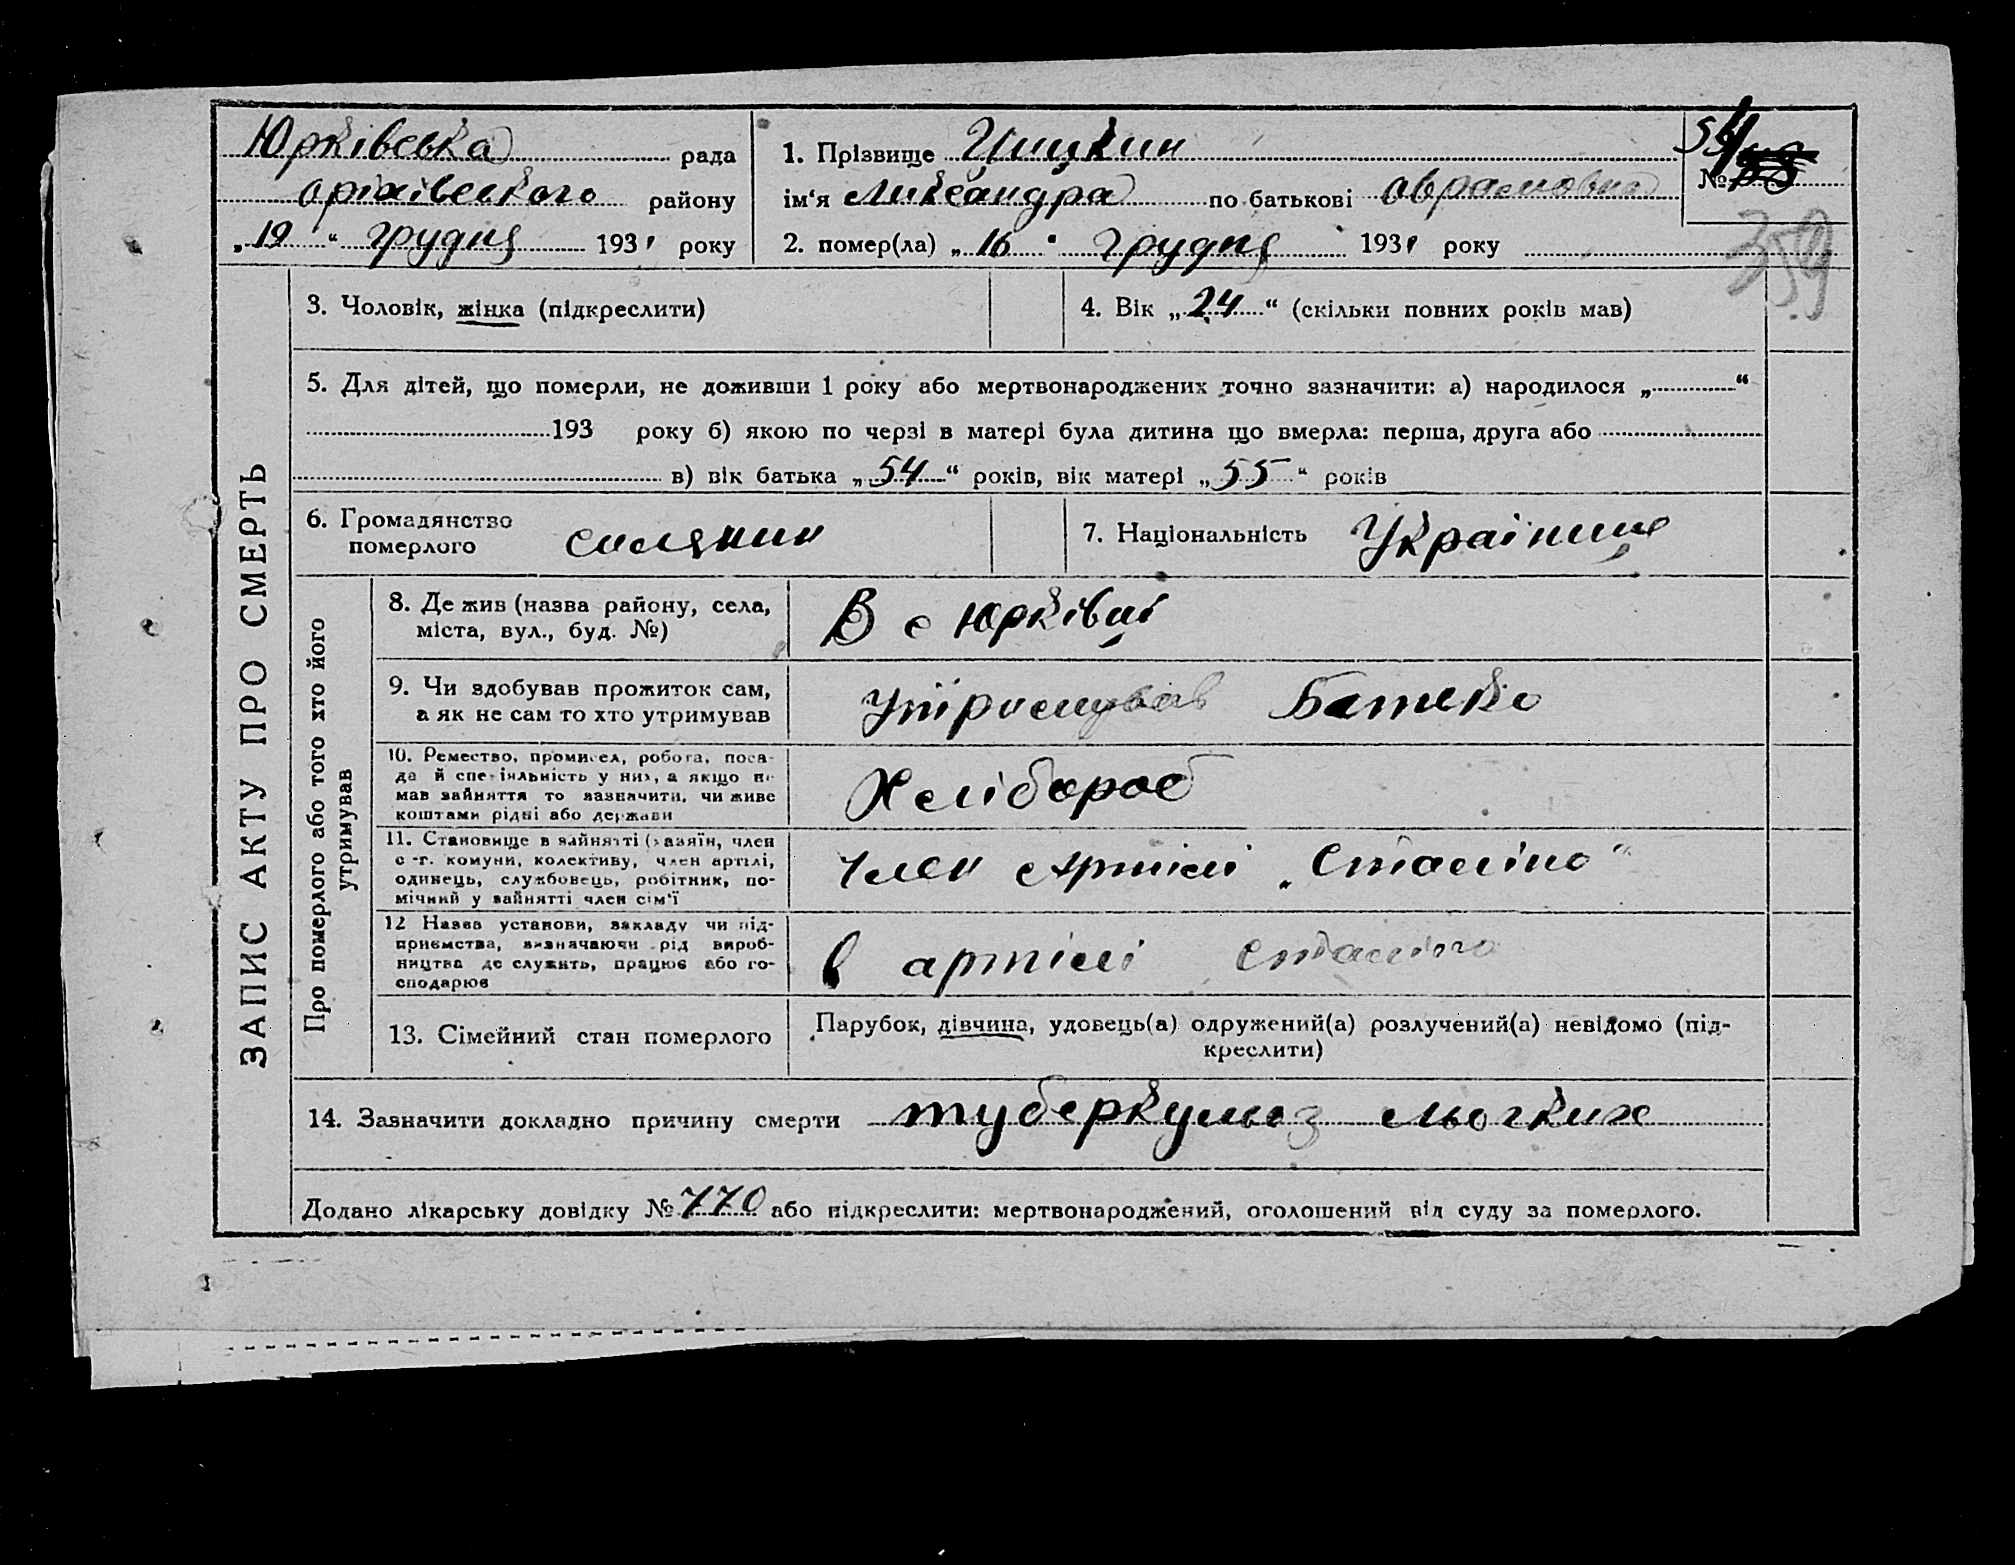 Юрківська рада
Оріхівського району
„19“ грудня 1931 року
1. Прізвище
ім'я Лександра по батькові
2. помер(ла) „16“ грудня 1931 року
54
№
359
ЗАПИС АКТУ ПРО СМЕРТЬ
3. Чоловік, жінка (підкреслити)
4. Вік „24“ (скільки повних років мав)
5. Для дітей, що померли, не доживши 1 року або мертвонароджених точно зазначити: а) народилося „ “
193 року б) якою по черзі в матері була дитина що вмерла: перша, друга або
в) вік батька „54“ років, вік матері „55“ років
6. Громадянство
померлого
селянин
7. Національність
Україн
Про померлого або того хто його
утримував
8. Де жив (назва району, села,
міста, вул., буд. №)
В с Юрківці
9. Чи здобував прожиток сам,
а як не сам то хто утримував
Утрімував Батько
10. Ремество, промисел, робота, поса-
да й спеціяльність у них, а якщо не
мав зайняття то зазначити, чи живе
коштами рідні або держави
Хлібороб
11. Становище в зайнятті (хазяїн, член
с.-г. комуни, колективу, член артілі,
одинець, службовець, робітник, по-
мічний у зайнятті член сім'ї
Член Артілі „Сталіна“
12 Назва установи, закладу чи під-
приємства, визначаючи рід вироб-
ництва де служить, працює або го-
сподарює
в артілі Сталіна
13. Сімейний стан померлого
Парубок, дівчина, удовець(а) одружений(а) розлучений(а) невідомо (під-
креслити)
14. Зазначити докладно причину смерти туберкульоз льогких
Додано лікарську довідку № 770 або підкреслити: мертвонароджений, оголошений від суду за померлого.